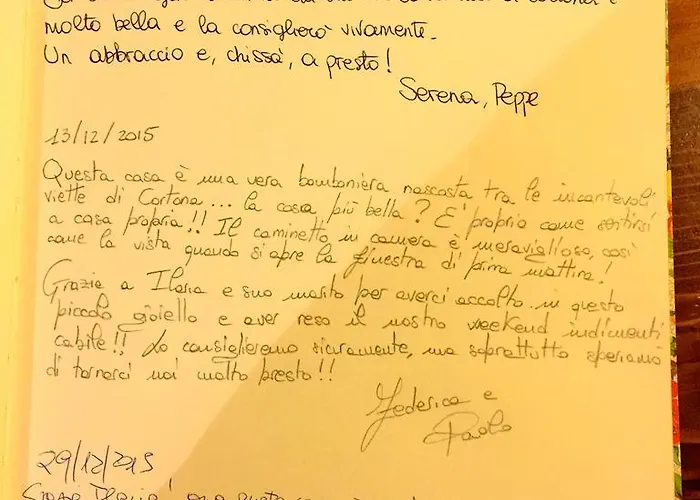 molto bella e la consiglierò vivamente.
Un abbraccio e, chissà, a presto!
Serena, Peppe
13/12/2015
Questa casa è una vera bomboniera nascosta tra le incantevoli
viette di Cortona... la cosa più bella? E' proprio come sentirsi
a casa propria!! Il caminetto in camera è meraviglioso, così
come la vista quando si apre la finestra di prima mattina!
Grazie a Ilaria e suo marito per averci accolto in questo
piccolo gioiello e aver reso il nostro weekend indimenti
cabile!! Lo consiglieremo sicuramente, ma soprattutto speriamo
di tornarci noi molto presto!!
Federica e
Paolo
29/12/2015